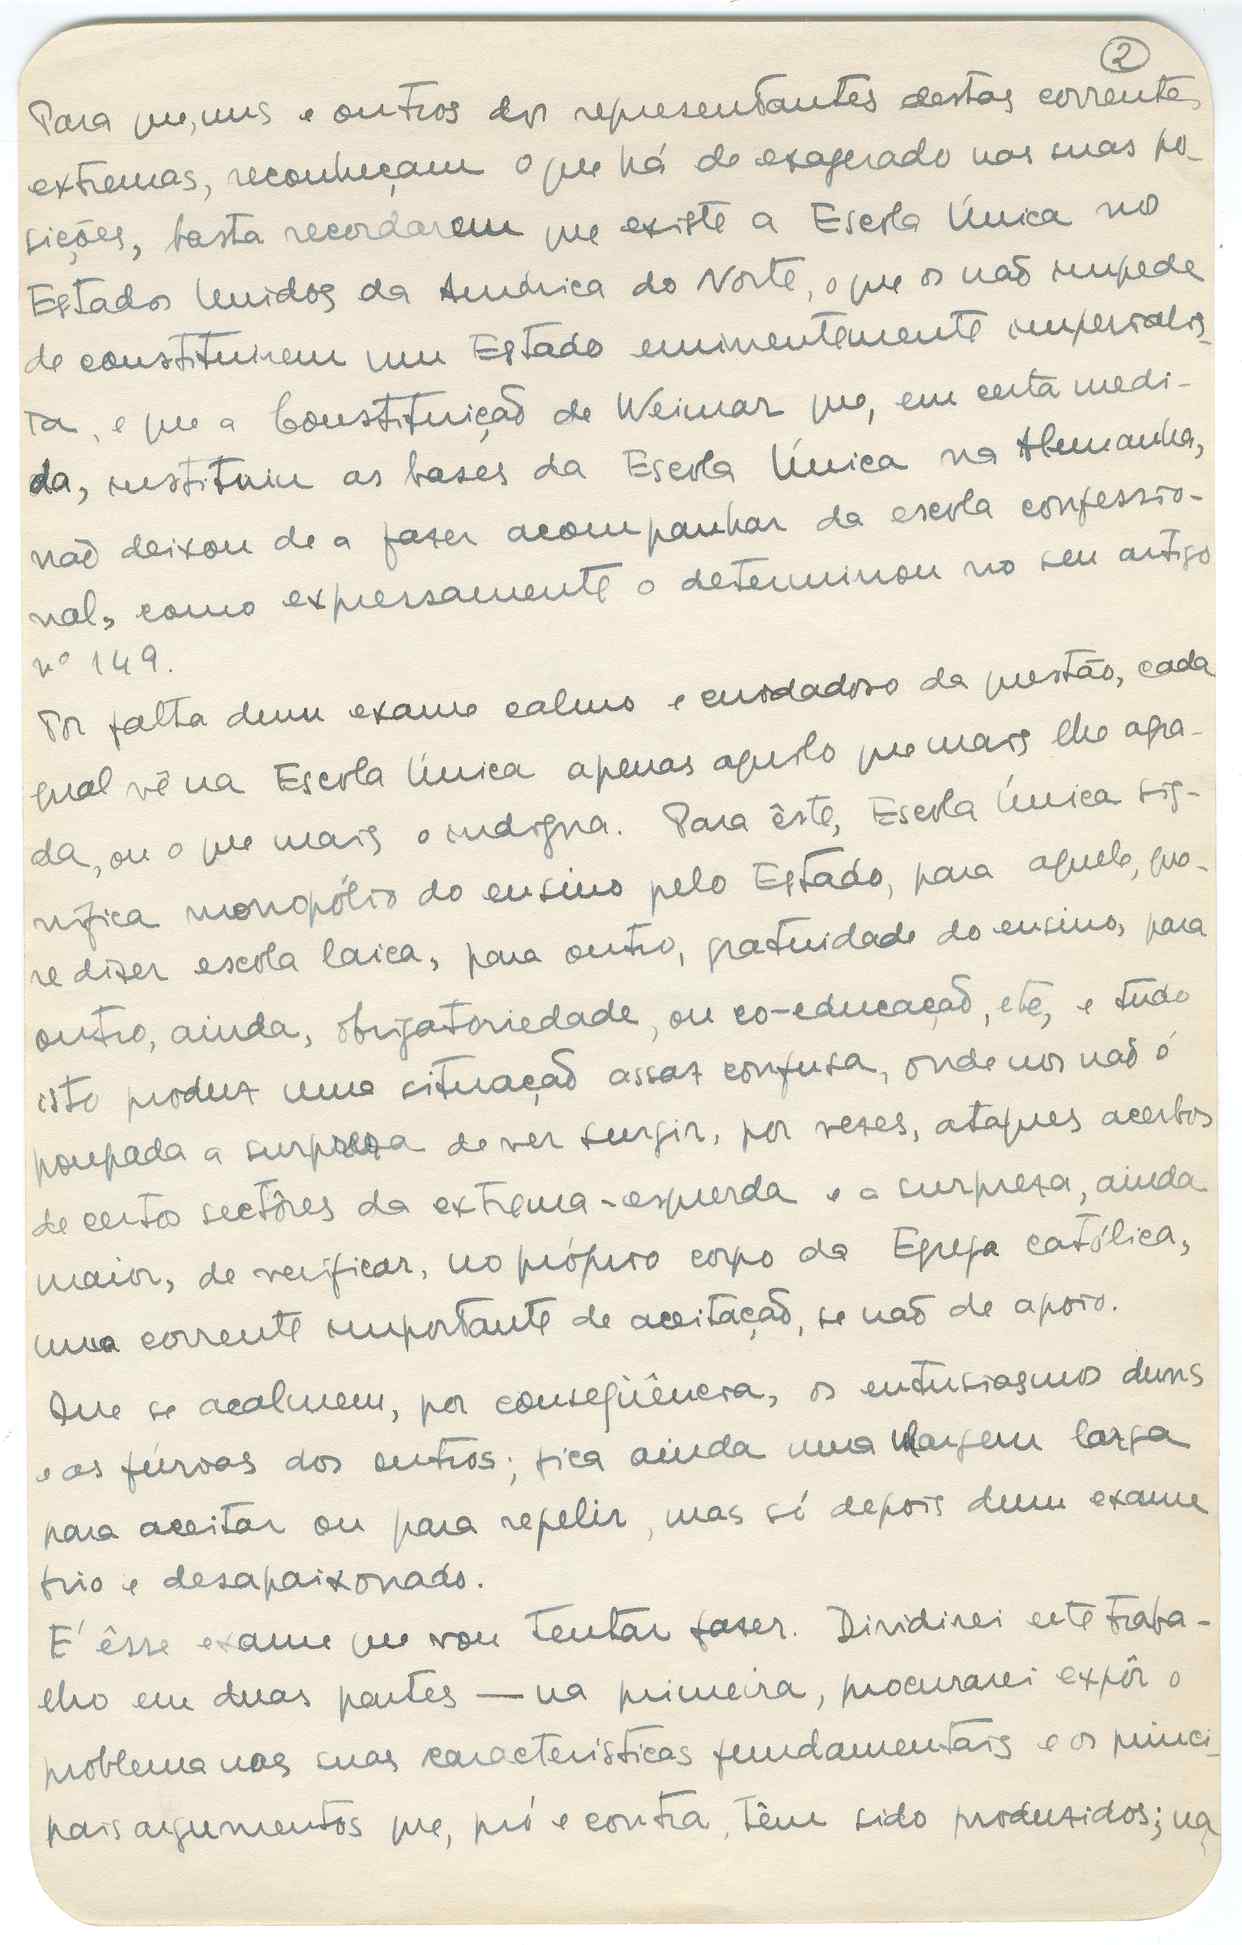 2
Para que, uns e outros dos representantes destas correntes
extremas, reconheçam o que há de exagerado nas suas po-
sições, basta recordarem que existe a Escola Única no
Estados Unidos da América do Norte, o que os não impede
de constituirem um Estado eminentemente imperialis-
ta, e que a Constituição de Weimar que, em certa medi-
da, instituiu as bases da Escola Única na Alemanha,
não deixou de a fazer acompanhar da escola confessio-
nal, como expressamente o determinou no seu artigo
nº 149.
Por falta dum exame calmo e cuidadoso da questão, cada
qual vê na Escola Única apenas aquilo que mais lhe agra-
da, ou o que mais o indigna. Para êste, Escola Única sig-
nifica monopólio do ensino pelo Estado, para aquele, que-
re dizer escola laica, para outro, gratuidade do ensino, para
outro, ainda, obrigatoriedade, ou co-educação, etc, e tudo
isto produz uma situação assaz confusa, onde nos não é
poupada a surpresa de ver surgir, por vezes, ataques acerbos
de certos sectôres da extrema-esquerda e a surpreza, ainda
maior, de verificar, no próprio corpo da Egreja católica,
uma corrente importante de aceitação, se não de apoio.
Que se acalmem, por conseqüência, os entusiasmos duns
e as fúrias dos outros; fica ainda uma margem larga
para aceitar ou para repelir, mas só depois dum exame
frio e desapaixonado.
E' êsse exame que vou tentar fazer. Dividirei este traba-
lho em duas partes — na primeira, procurarei expôr o
problema nas suas características fundamentais e os princi-
pais argumentos que, pró e contra, têm sido produzidos; na